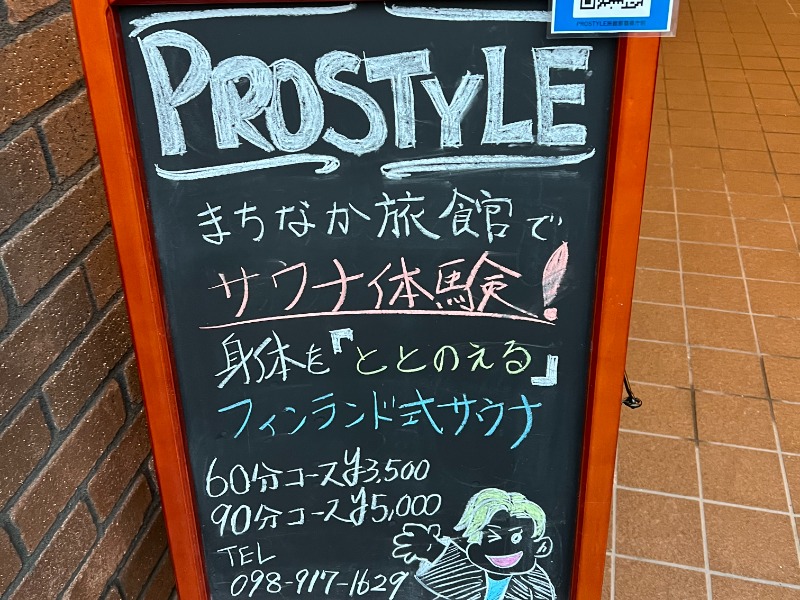 PROSTYLE
まちなか旅館で
サウナ体験!
身体を『ととのえる』
フィンランド式サウナ
60分コース¥3,500
90分コース¥5,000
TEL
098-917-1629